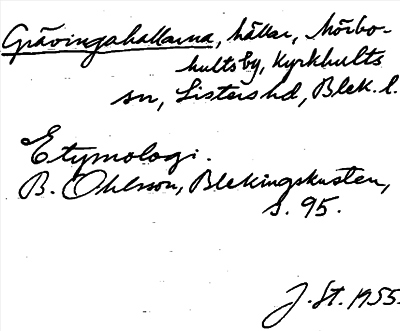 Grävingahallarna, hällar, Mörbo-
hultsby, Kyrkhults
sn, Listers hd, Blek. l.
Etymologi.
B. Ohlsson, Blekingskusten,
s. 95.
J. St. 1955.